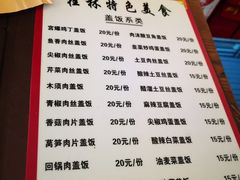 桂林特色美食
盖饭系类
宫爆鸡丁盖饭 20元/份 肉沫酸豆角盖饭
鱼香肉丝盖饭 20元/份
尖椒肉丝盖饭 20元/份 土豆肉丝盖饭 20元/份
芹菜肉丝盖饭 20元/份 酸辣土豆丝盖饭 15元/份
木须肉盖饭 20元/份 土豆丝盖饭 15元/份
青椒肉丝盖饭 20元/份 麻辣豆腐盖饭 15元/份
香菇肉片盖饭 20元/份 尖椒鸡蛋盖饭 15元/份
莴笋肉片盖饭 20元/份 酸辣白菜盖饭 15元/份
回锅肉盖饭 20元/份 油麦菜盖饭 15元/份